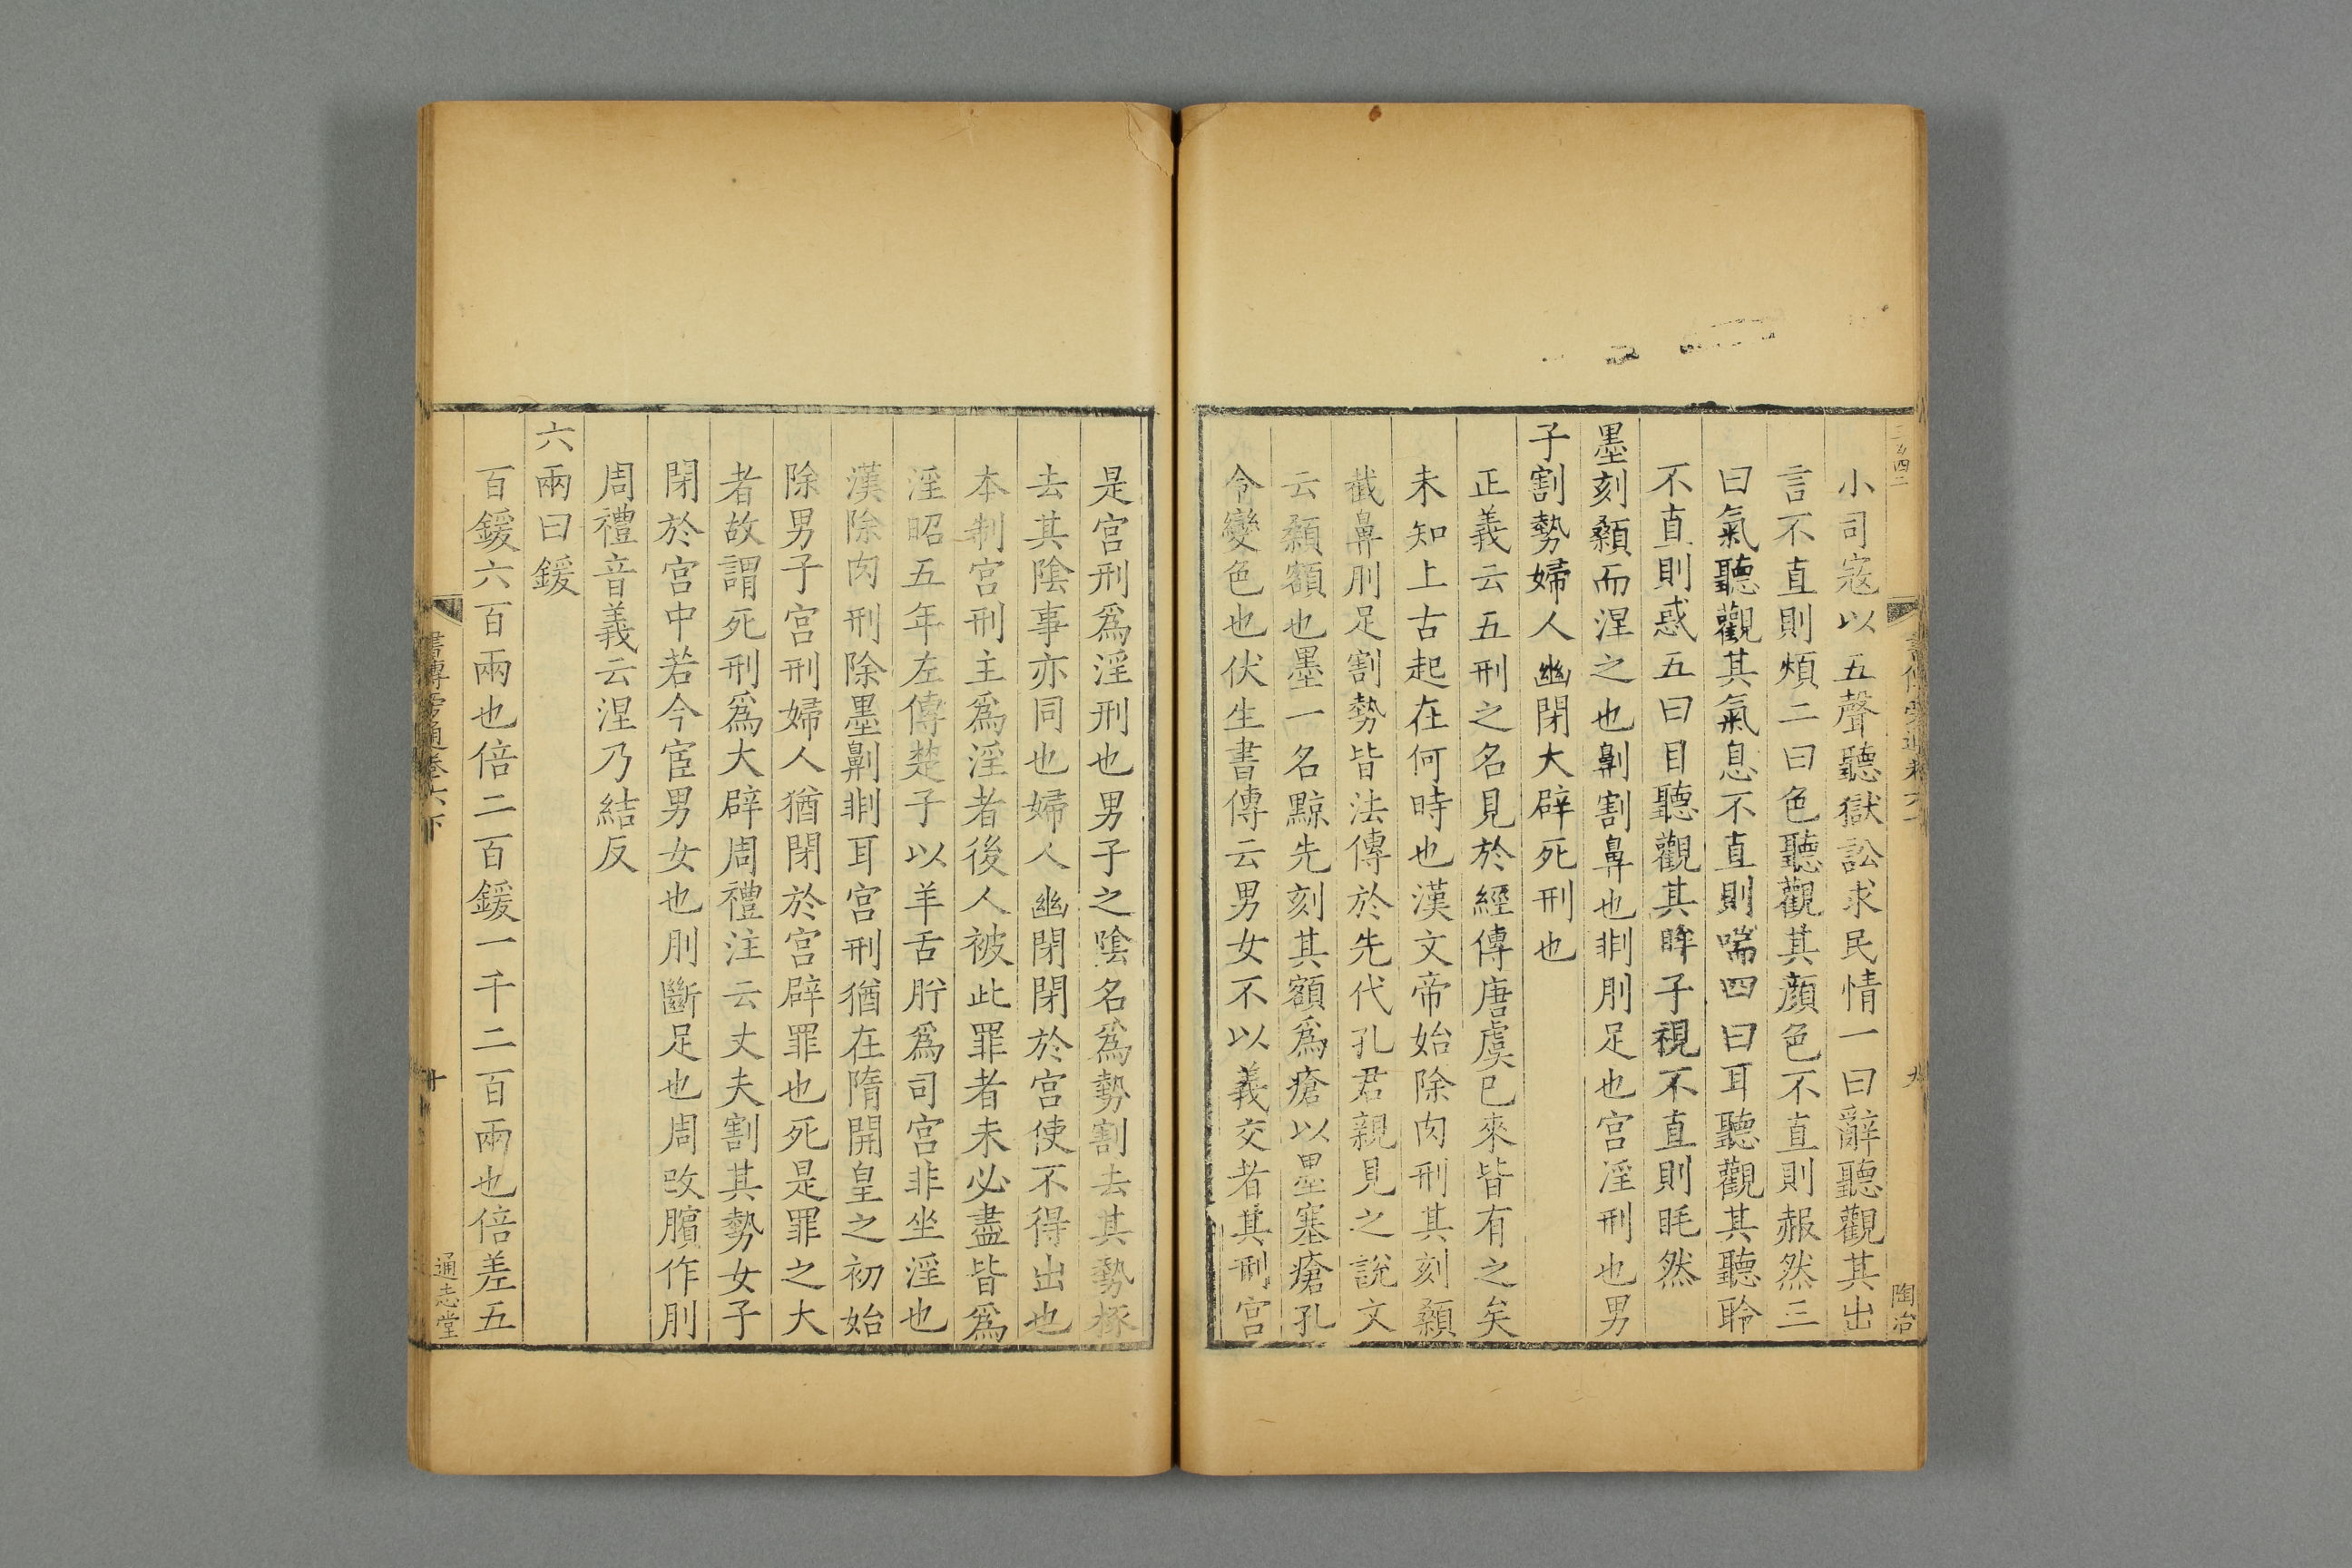 小司寇以五聲聽獄訟求民情一曰辭聽觀其出
言不直則煩二曰色聽觀其顏色不直則赧然三
曰氣聽觀其氣息不直則喘四曰耳聽觀其聽聆
不直則惑五曰目聽觀其眸子視不直則眊然
墨刻顙而涅之也劓割鼻也剕刖足也宮淫刑也男
子割勢婦人幽閉大辟死刑也
正義云五刑之名見於經傳唐虞已來皆有之矣
未知上古起在何時也漢文帝始除肉刑其刻顙
截鼻刖足割勢皆法傳於先代孔君親見之說文
云顙額也墨一名黥先刻其額為瘡以墨塞瘡孔
令變色也伏生書傳云男女不以義交者其刑宮
是宮刑為淫刑也男子之陰名為勢割去其勢椓
去其陰事亦同也婦人幽閉閉於宮使不得出也
本制宮刑主為淫者後人被此罪者未必盡皆為
淫昭五年左傳楚子以羊舌肸為司宮非坐淫也
漢除肉刑除墨劓剕耳宮刑猶在隋開皇之初始
除男子宮刑婦人猶閉於宮辟罪也死是罪之大
者故謂死刑為大辟周禮注云丈夫割其勢女子
閉於宮中若今宦男女也刖斷足也周改臏作刖
周禮音義云涅乃結反
六兩曰鍰
百鍰六百兩也倍二百鍰一千二百兩也倍差五
書傳旁通卷六下
十
通志堂
九
陶冶